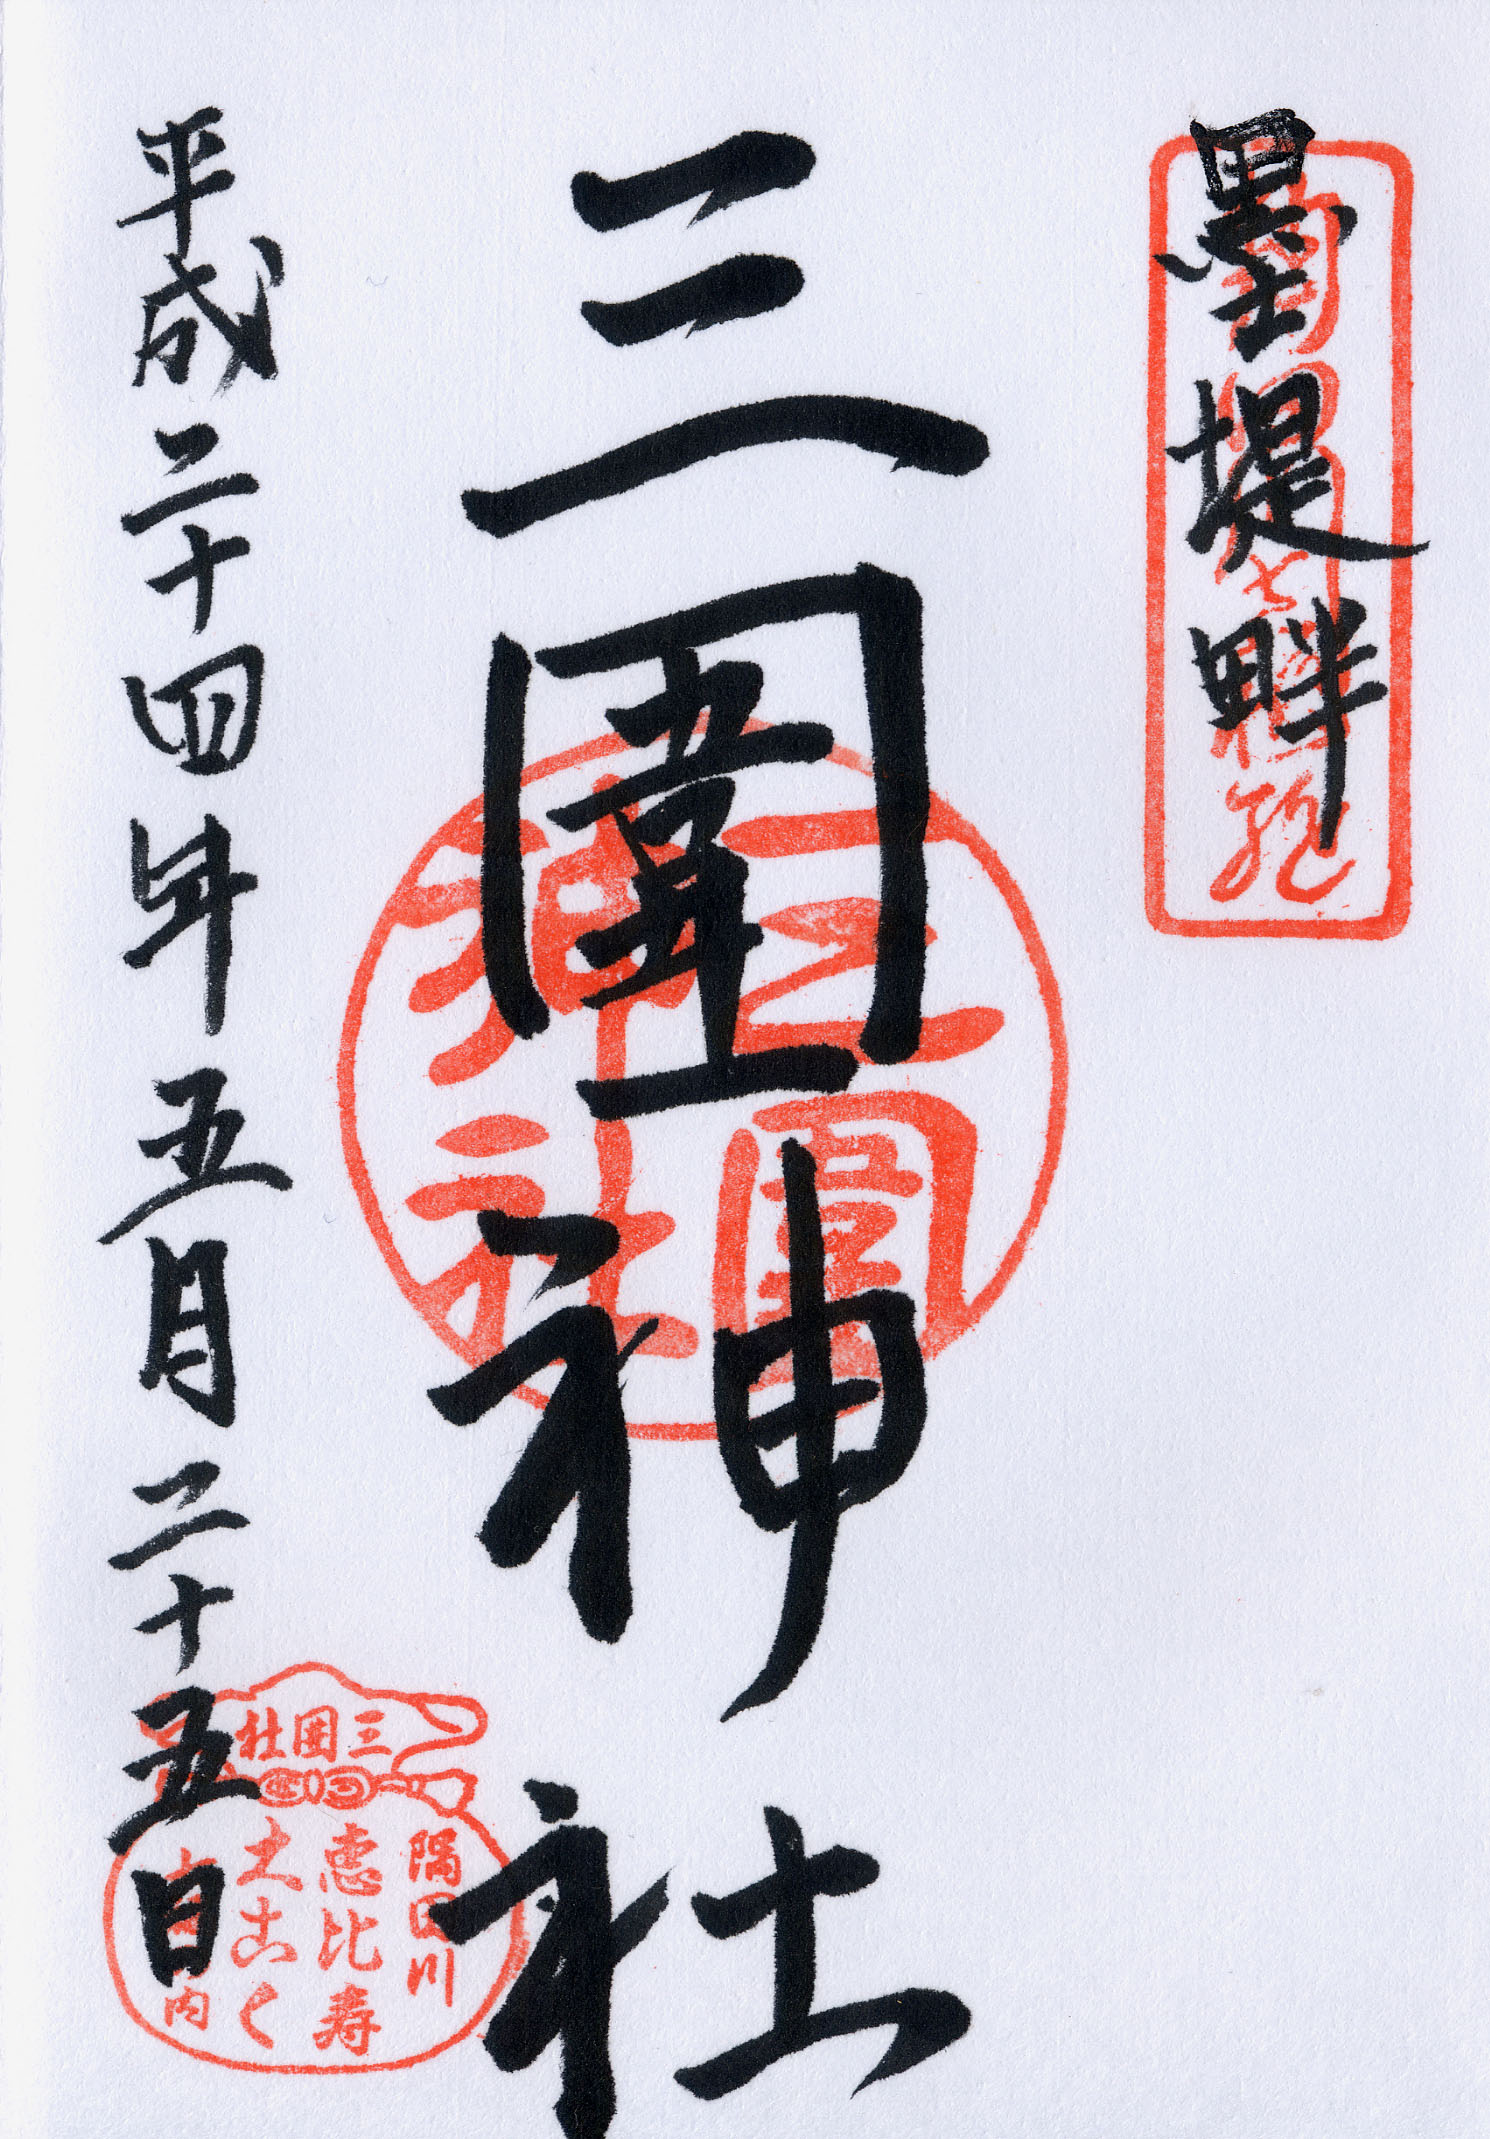 墨堤畔
三圍神社
三圍神社
平成二十四年五月二十五日
三囲社
隅田川
恵比寿
大こく